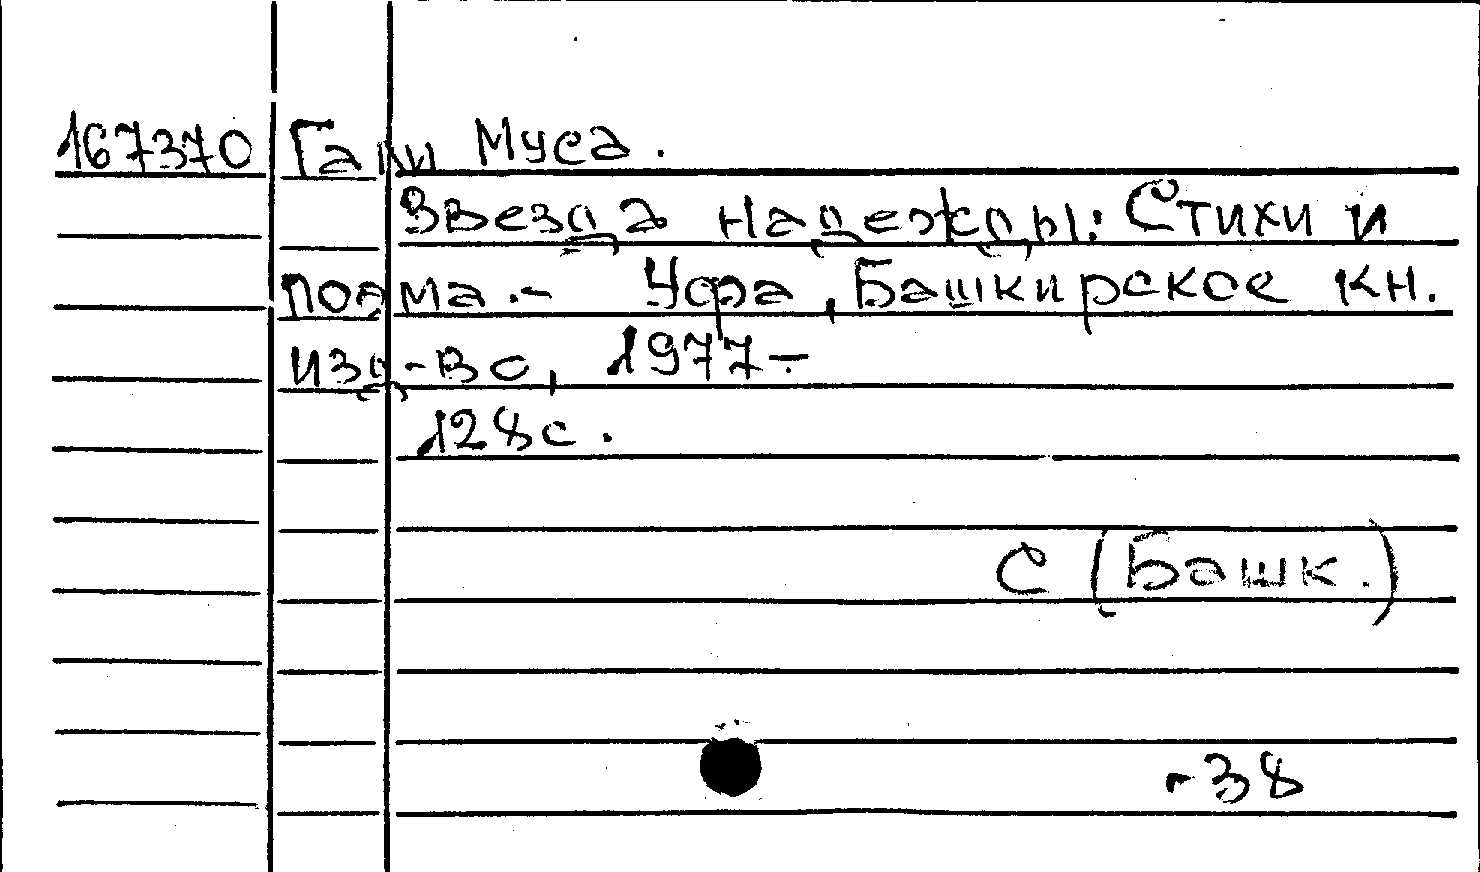 167370 Гали Муса.
Звезда надежды: Стихи и
поэма.- Уфа, Башкирское кн.
изд-во, 1977.-
128с.
С (Башк.)
-38